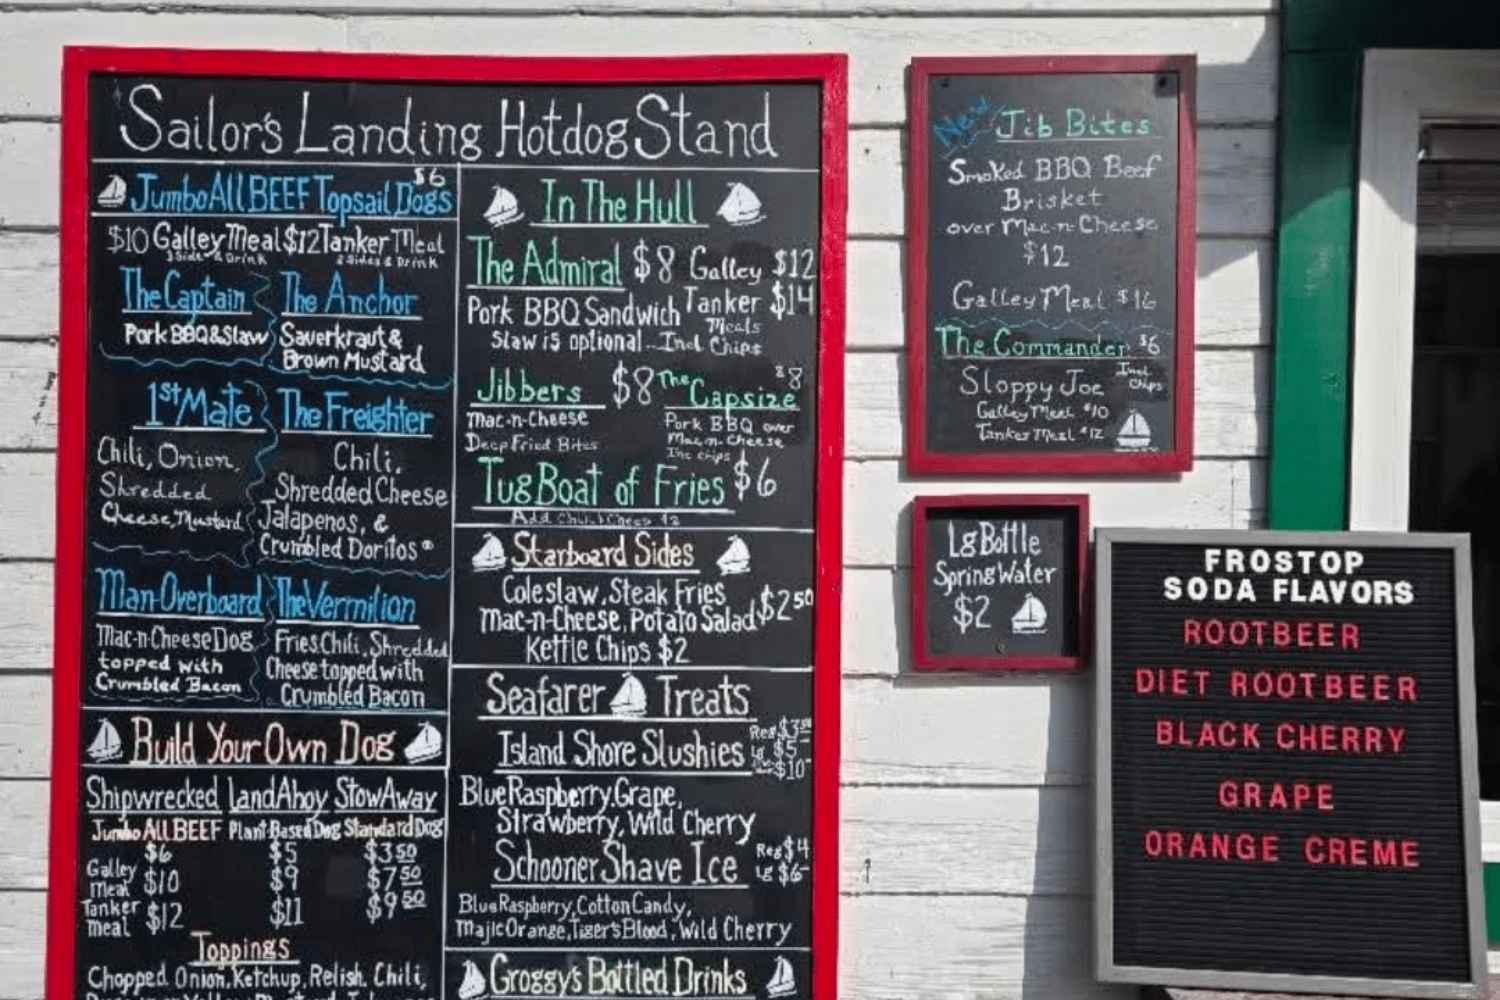 Sailor's Landing Hotdog Stand
$6
Jumbo All BEEF Topsail Dogs
$10 Galley Meal $12 Tanker Meal
1 Side & Drink 2 Sides & Drink
The Captain The Anchor
Pork BBQ & Slaw Sauerkraut &
Brown Mustard
1st Mate The Freighter
Chili, Onion, Chili,
Shredded Shredded Cheese
Cheese, Mustard Jalapenos, &
Crumbled Doritos®
Man-Overboard The Vermilion
Mac-n-Cheese Dog Fries, Chili, Shredded
topped with Cheese topped with
Crumbled Bacon Crumbled Bacon
Build Your Own Dog
Shipwrecked Land Ahoy Stow Away
Jumbo All BEEF Plant Based Dog Standard Dog
$6 $5 $3 50
Galley
meal $10 $9 $7 50
Tanker
meal $12 $11 $9 50
Toppings
Chopped Onion, Ketchup, Relish, Chili,
In The Hull
The Admiral $8 Galley $12
Pork BBQ Sandwich Tanker $14
Meals
Slaw is optional... Incl Chips
Jibbers $8 The Capsize $8
Mac-n-Cheese Pork BBQ over
Deep Fried Bites Mac-n-Cheese
Inc chips
Tug Boat of Fries $6
Add
Starboard Sides
Coleslaw, Steak Fries
Mac-n-Cheese, Potato Salad $2 50
Kettle Chips $2
Seafarer Treats
Island Shore Slushies Reg $3 50
Lg $5
$10
Blue Raspberry, Grape,
Strawberry, Wild Cherry
Schooner Shave Ice Reg $4
Lg $6
Blue Raspberry, Cotton Candy,
Majic Orange, Tiger's Blood, Wild Cherry
Groggy's Bottled Drinks
New Jib Bites
Smoked BBQ Beef
Brisket
over Mac-n-Cheese
$12
Galley Meal $16
The Commander $6
Sloppy Joe Incl Chips
Galley Meal $10
Tanker Meal $12
Lg Bottle
Spring Water
$2
FROSTOP
SODA FLAVORS
ROOTBEER
DIET ROOTBEER
BLACK CHERRY
GRAPE
ORANGE CREME